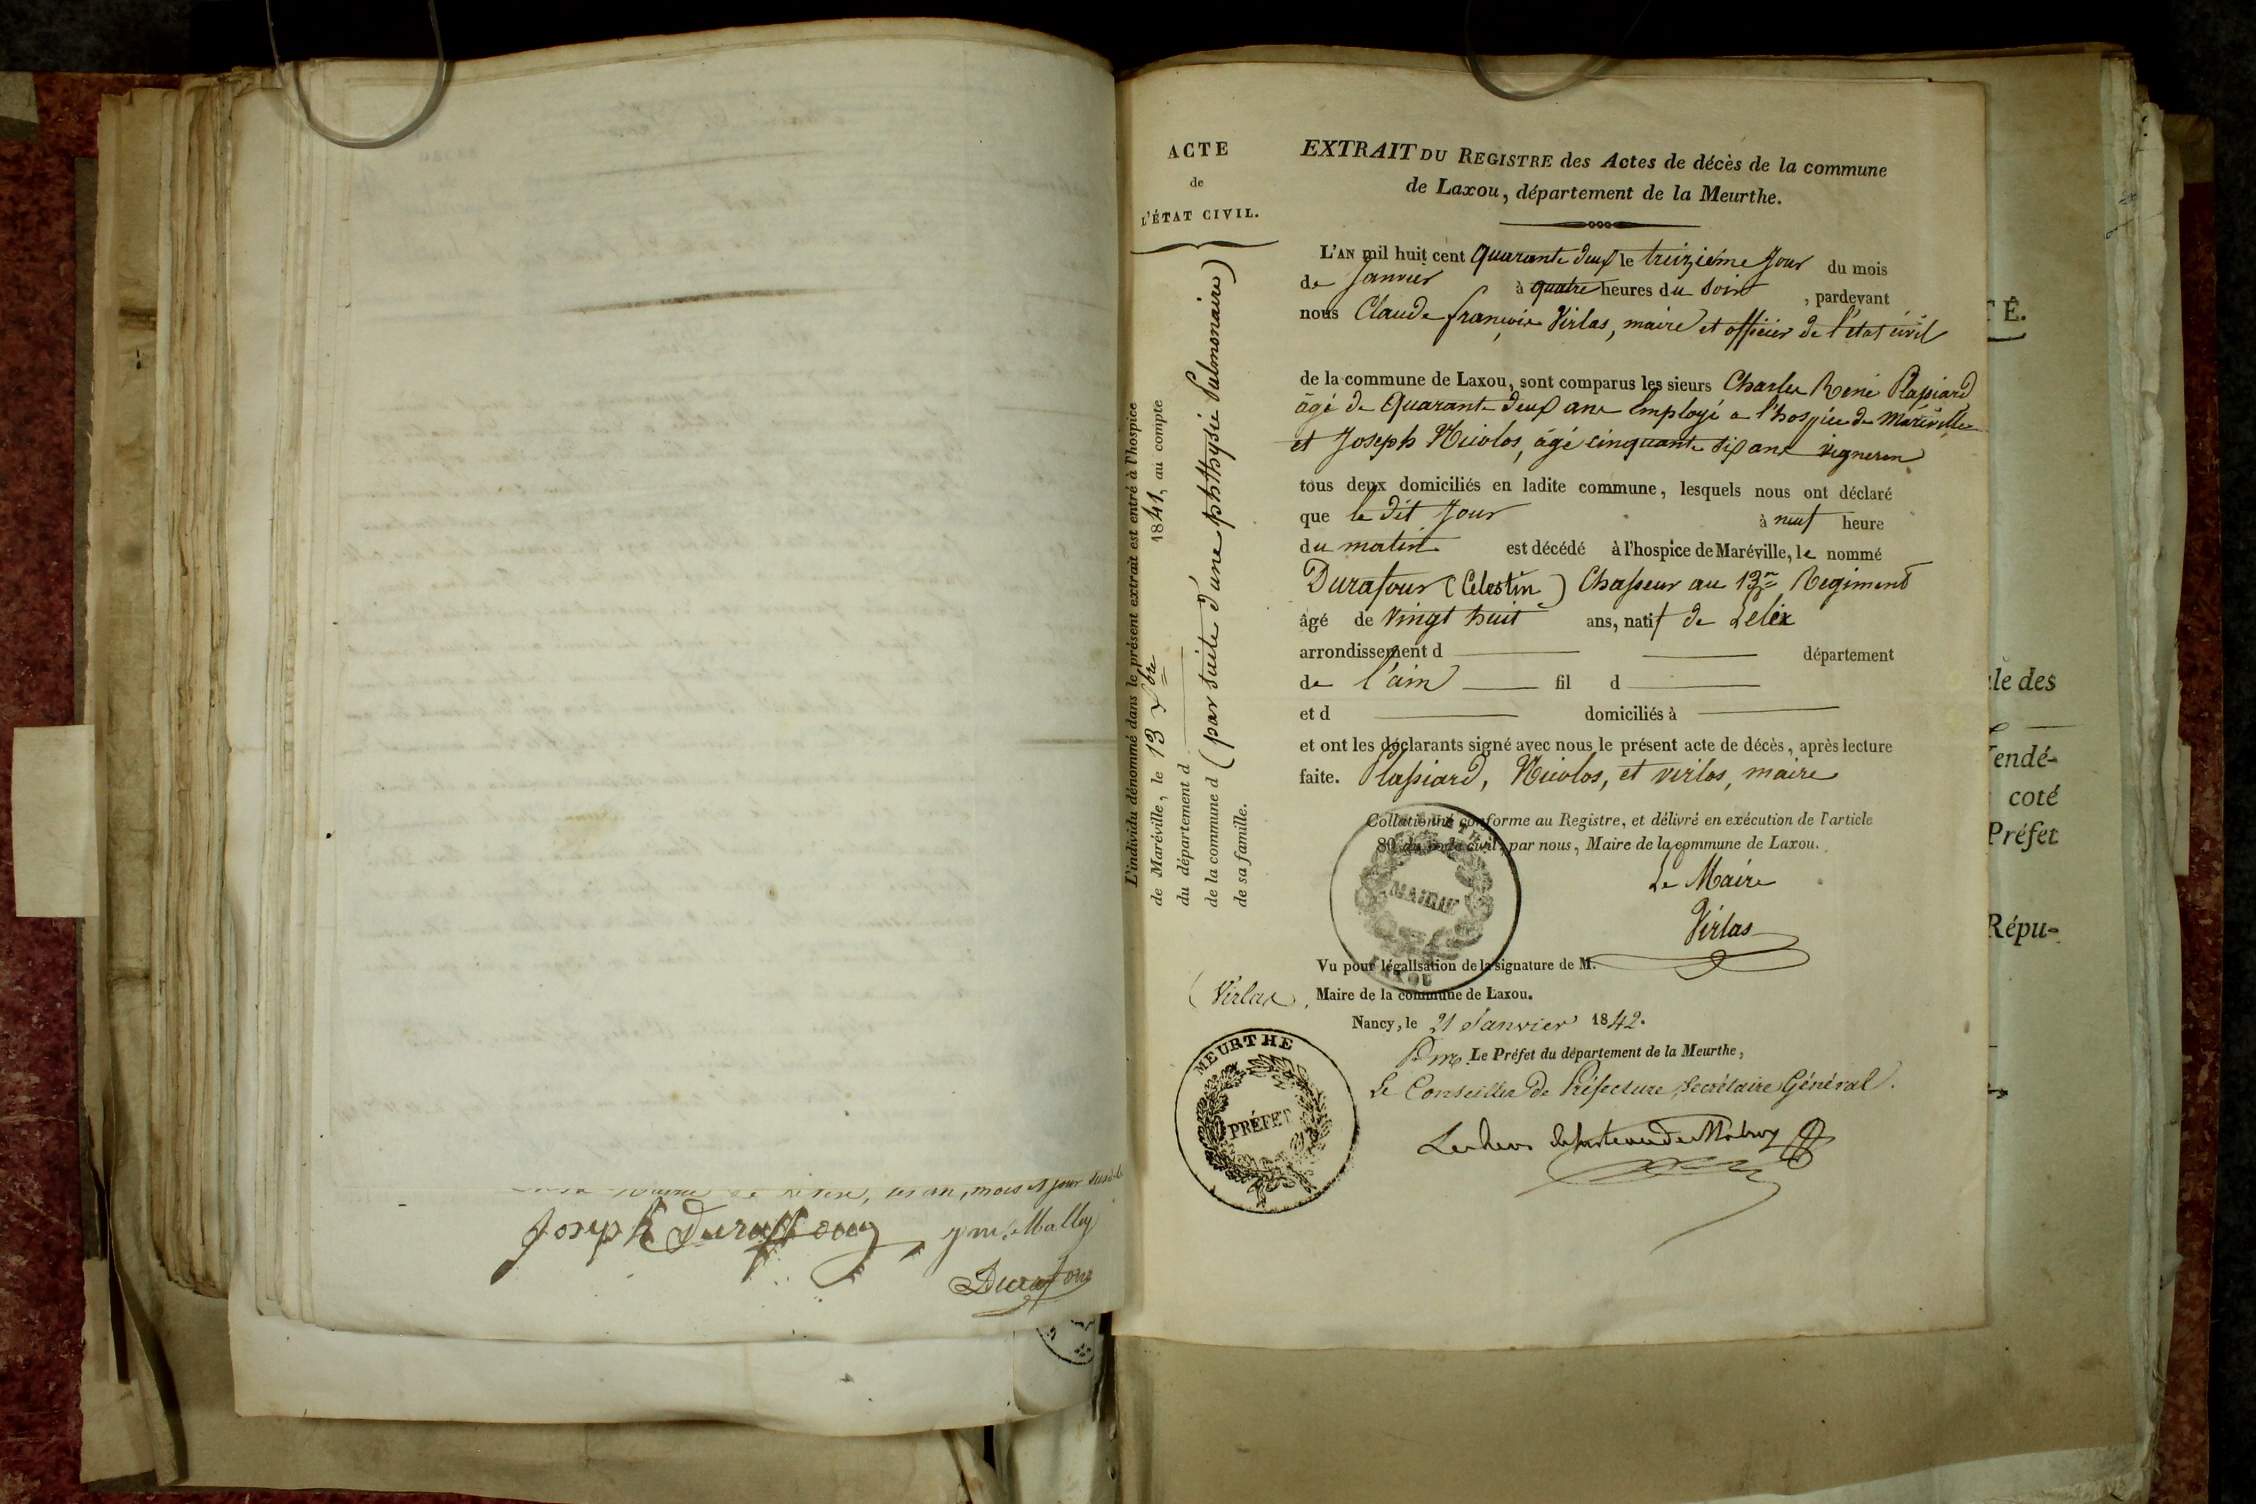 les an, mois et jour susdits
Joseph Duraffourg
Malley
Durafour
ACTE
de
L'ÉTAT CIVIL.
L'individu dénommé dans le présent extrait est entré à l'hospice
de Maréville, le 13 Xbre 1841, au compte
du département d
de la commune d (par suite d'une phthysie Pulmonaire)
de sa famille.
EXTRAIT DU REGISTRE des Actes de décès de la commune
de Laxou, département de la Meurthe.
L'AN mil huit cent Quarante deux le treizième Jour du mois
de Janvier à quatre heures du soir, pardevant
nous Claude françois Virlas, maire et officier de l'état civil
de la commune de Laxou, sont comparus les sieurs Charles René Plassiard
âgé de Quarante deux ans Employé a l'hospice de Maréville
et Joseph Nicolas, âgé cinquante six ans vigneron
tous deux domiciliés en ladite commune, lesquels nous ont déclaré
que le dit Jour à neuf heure
du matin est décédé à l'hospice de Maréville, le nommé
Durafour (Celestin) Chasseur au 13me Regiment
âgé de Vingt huit ans, natif de Lelex
arrondissement d département
de l'ain fil d
et d domiciliés à
et ont les déclarants signé avec nous le présent acte de décès, après lecture
faite. Plassiard, Nicolas, et virlas, maire
Collationné conforme au Registre, et délivré en exécution de l'article
80 du code civil, par nous, Maire de la commune de Laxou.
Le Maire
Virlas
MAIRIE
LAXOU
Vu pour légalisation de la signature de M.
(Virlas), Maire de la commune de Laxou.
Nancy, le 21 Janvier 1842.
Pour Le Préfet du département de la Meurthe,
Le Conseiller de Préfecture, Secrétaire Général.
MEURTHE
PRÉFET
TÉ.
le des
endé-
coté
Préfet
Répu-